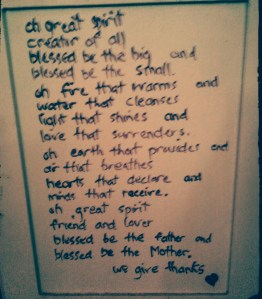 oh great spirit
creator of all
blessed be the big and
blessed be the small.
oh fire that warms and
water that cleanses
light that shines and
love that surrenders.
oh earth that provides and
air that breathes
hearts that declare and
minds that receive.
oh great spirit
friend and lover
blessed be the father and
blessed be the Mother.
we give thanks